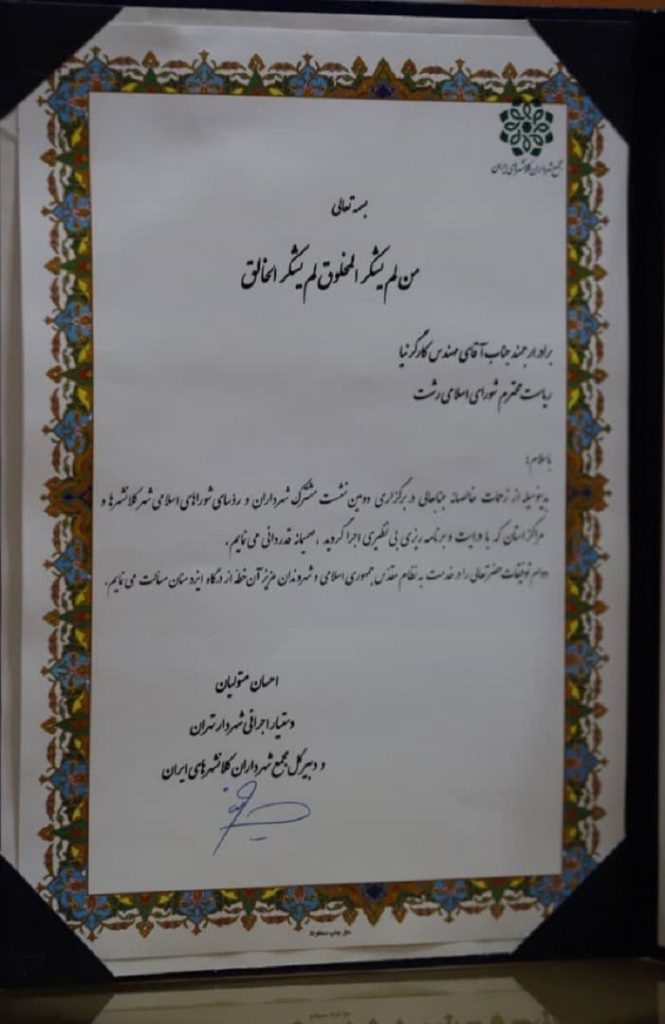 مجمع شهرداران کلانشهرهای ایران
بسمه تعالی
من لم یشکر المخلوق لم یشکر الخالق
برادر ارجمند جناب آقای مهندس کارگرنیا
ریاست محترم شورای اسلامی رشت
باسلام؛
بدینوسیله از زحمات خالصانه جنابعالی در برگزاری دومین نشست مشترک شهرداران و رؤسای شوراهای اسلامی شهر کلانشهرها و
مراکز استان که با درایت و برنامه ریزی بی نظیری اجرا گردید ، صمیمانه قدردانی می نمایم.
دوام توفیقات حضرتعالی را در خدمت به نظام مقدس جمهوری اسلامی و شهروندان عزیز آن خطه از درگاه ایزد منان مسألت می نمایم.
احسان متولیان
دستیار اجرائی شهردار تهران
و دبیرکل مجمع شهرداران کلانشهرهای ایران
حق چاپ محفوظ